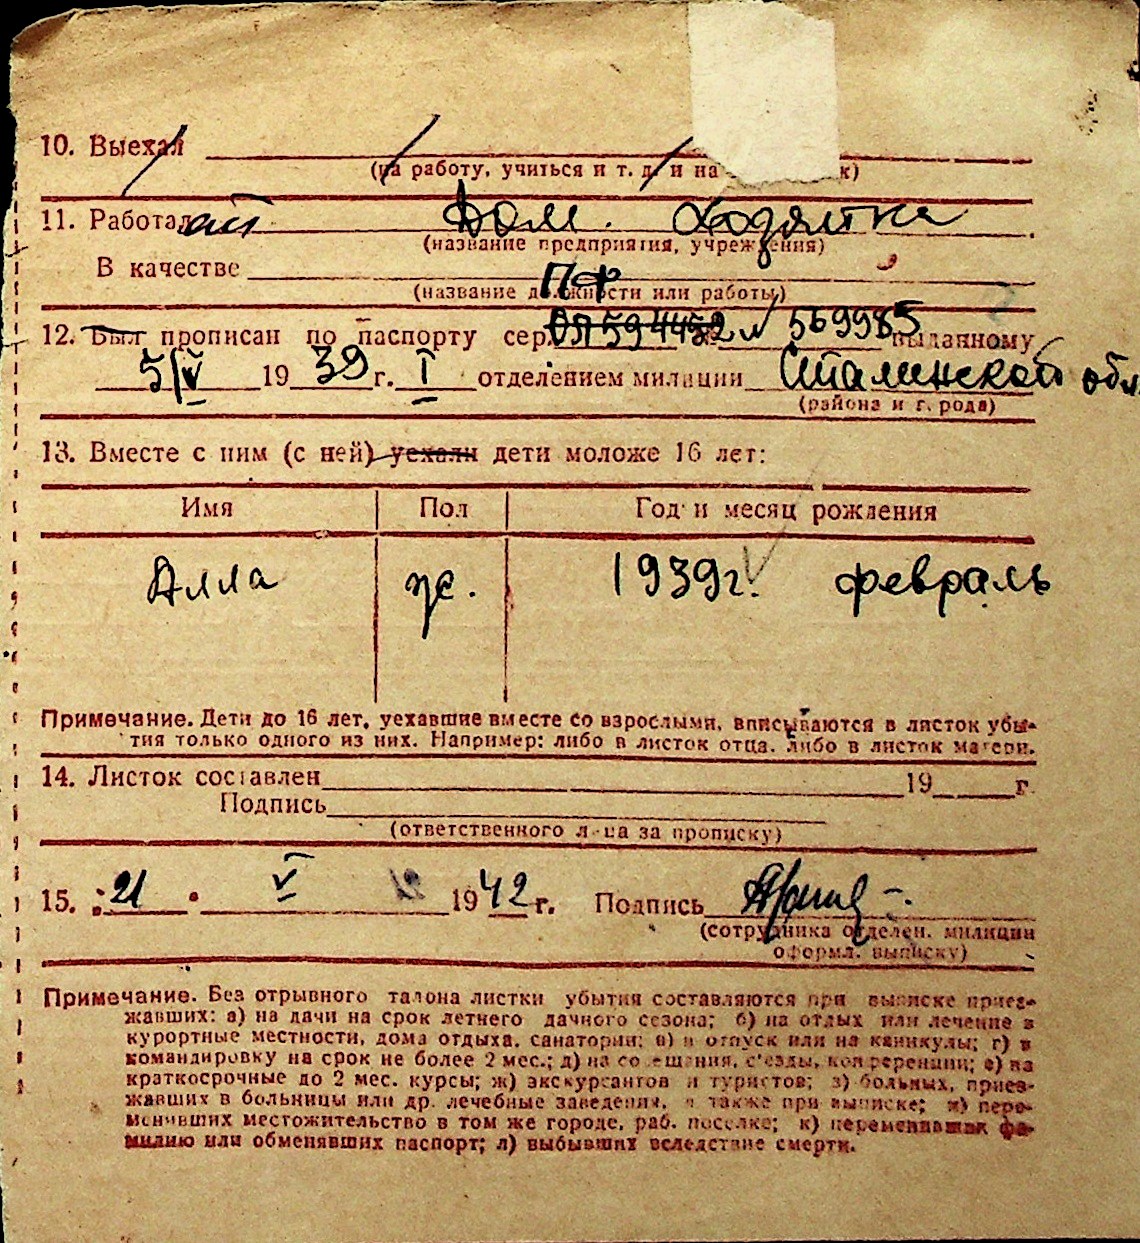 10. Выехал
(на работу, учиться и т. д. и на к)
11. Работает Дом. Хозяйка
(название предприятия, учреждения)
В качестве ПФ
(название должности или работы)
12. Был прописан по паспорту сер. 594452 № 569985 выданному
5/V 1939 г. I отделением милиции Сталинской обл
(района и города)
13. Вместе с ним (с ней) уехали дети моложе 16 лет:
Имя Пол Год и месяц рождения
Алла ж. 1939 г. февраль
Примечание. Дети до 16 лет, уехавшие вместе со взрослыми, вписываются в листок убы-
тия только одного из них. Например: либо в листок отца, либо в листок матери.
14. Листок составлен 19 г.
Подпись
(ответственного лица за прописку)
15. 21 V 1942 г. Подпись
(сотрудника отделен. милиции
оформл. выписку)
Примечание. Без отрывного талона листки убытия составляются при выписке приез-
жавших: а) на дачи на срок летнего дачного сезона; б) на отдых или лечение в
курортные местности, дома отдыха, санатории; в) в отпуск или на каникулы; г) в
командировку на срок не более 2 мес.; д) на совещания, с'езды, конференции; е) на
краткосрочные до 2 мес. курсы; ж) экскурсантов и туристов; з) больных, приез-
жавших в больницы или др. лечебные заведения, а также при выписке; и) пере-
менивших местожительство в том же городе, раб. поселке; к) переменивших фа-
милию или обменявших паспорт; л) выбывших вследствие смерти.